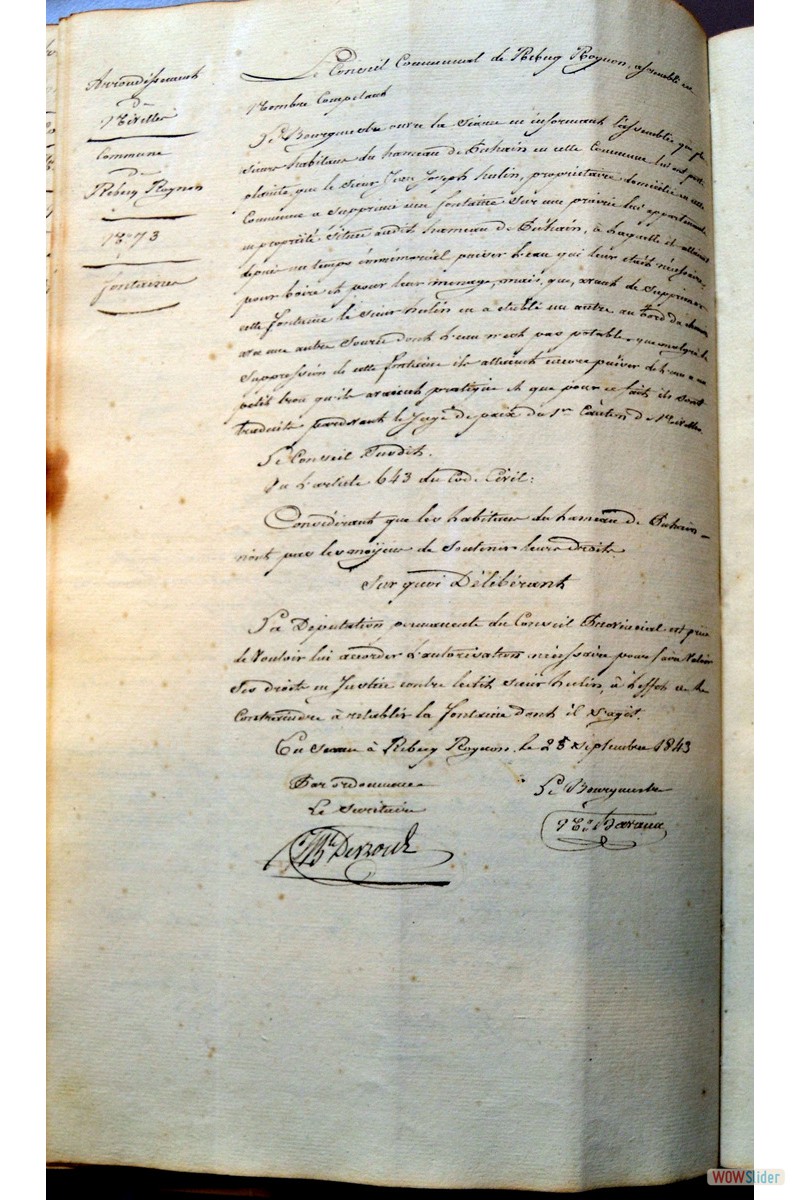 Arrondissement
de
Nivelles
Commune
de
Rebecq Rognon
N° 73
fontaine
Le Conseil Communal de Rebecq Rognon, assemblé en
Nombre Compétant
Le Bourgmestre ouvre la séance en informant l'assemblée, que plu
sieurs habitans du hameau de Tuhain en cette Commune lui ont porté
plainte, que le Sieur Jean Joseph hulin, propriétaire domicilié en cette
Commune a supprimé une fontaine sur une prairie lui appartenant
en propriété située audit hameau de Tuhain, à laquelle ils allaient
depuis un temps immémorial puiser l'eau qui leur était nécessaire
pour boire et pour leur ménage, mais, que, avant de supprimer
cette fontaine le sieur hulin en a établi un autre au bord du chemin
avec une autre source dont l'eau n'est pas potable, que malgré la
suppression de cette fontaine ils allaient encore puiser de l'eau a un
petit trou qu'ils avaient pratiqué et que pour ce fait ils sont
traduits pardevant le Juge de paix du 1er Canton de Nivelles.
Le Conseil Susdit.
Vu l'article 643 du Code Civil:
Considérant que les habitans du hameau de Tuhain
n'ont pas les moyens de soutenir leurs droits.
Sur quoi Délibérant
La Députation permanente du Conseil Provincial est priée
de Vouloir lui accorder l'autorisation nécessaire pour faire Valoir
Ses droits en Justice contre ledit sieur hulin, à l'effet de le
Contraindre à rétablir la fontaine dont il s'agit.
En Séance à Rebecq Rognon, le 28 Septembre 1843
Par ordonnance
Le Secrétaire
Le Bourgmestre
WOWSlider